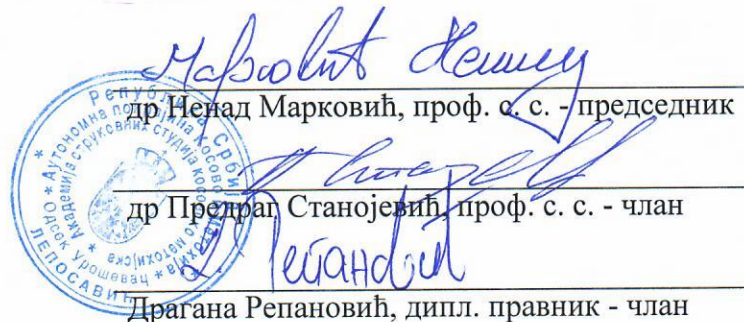 Марковић Ненад
др Ненад Марковић, проф. с. с. - председник
др Предраг Станојевић, проф. с. с. - члан
Репановић
Драгана Репановић, дипл. правник - члан
Република Србија
Аутономна покрајина Косово и Метохија
Академија струковних студија косовско метохијска
Одсек Урошевац
ЛЕПОСАВИЋ